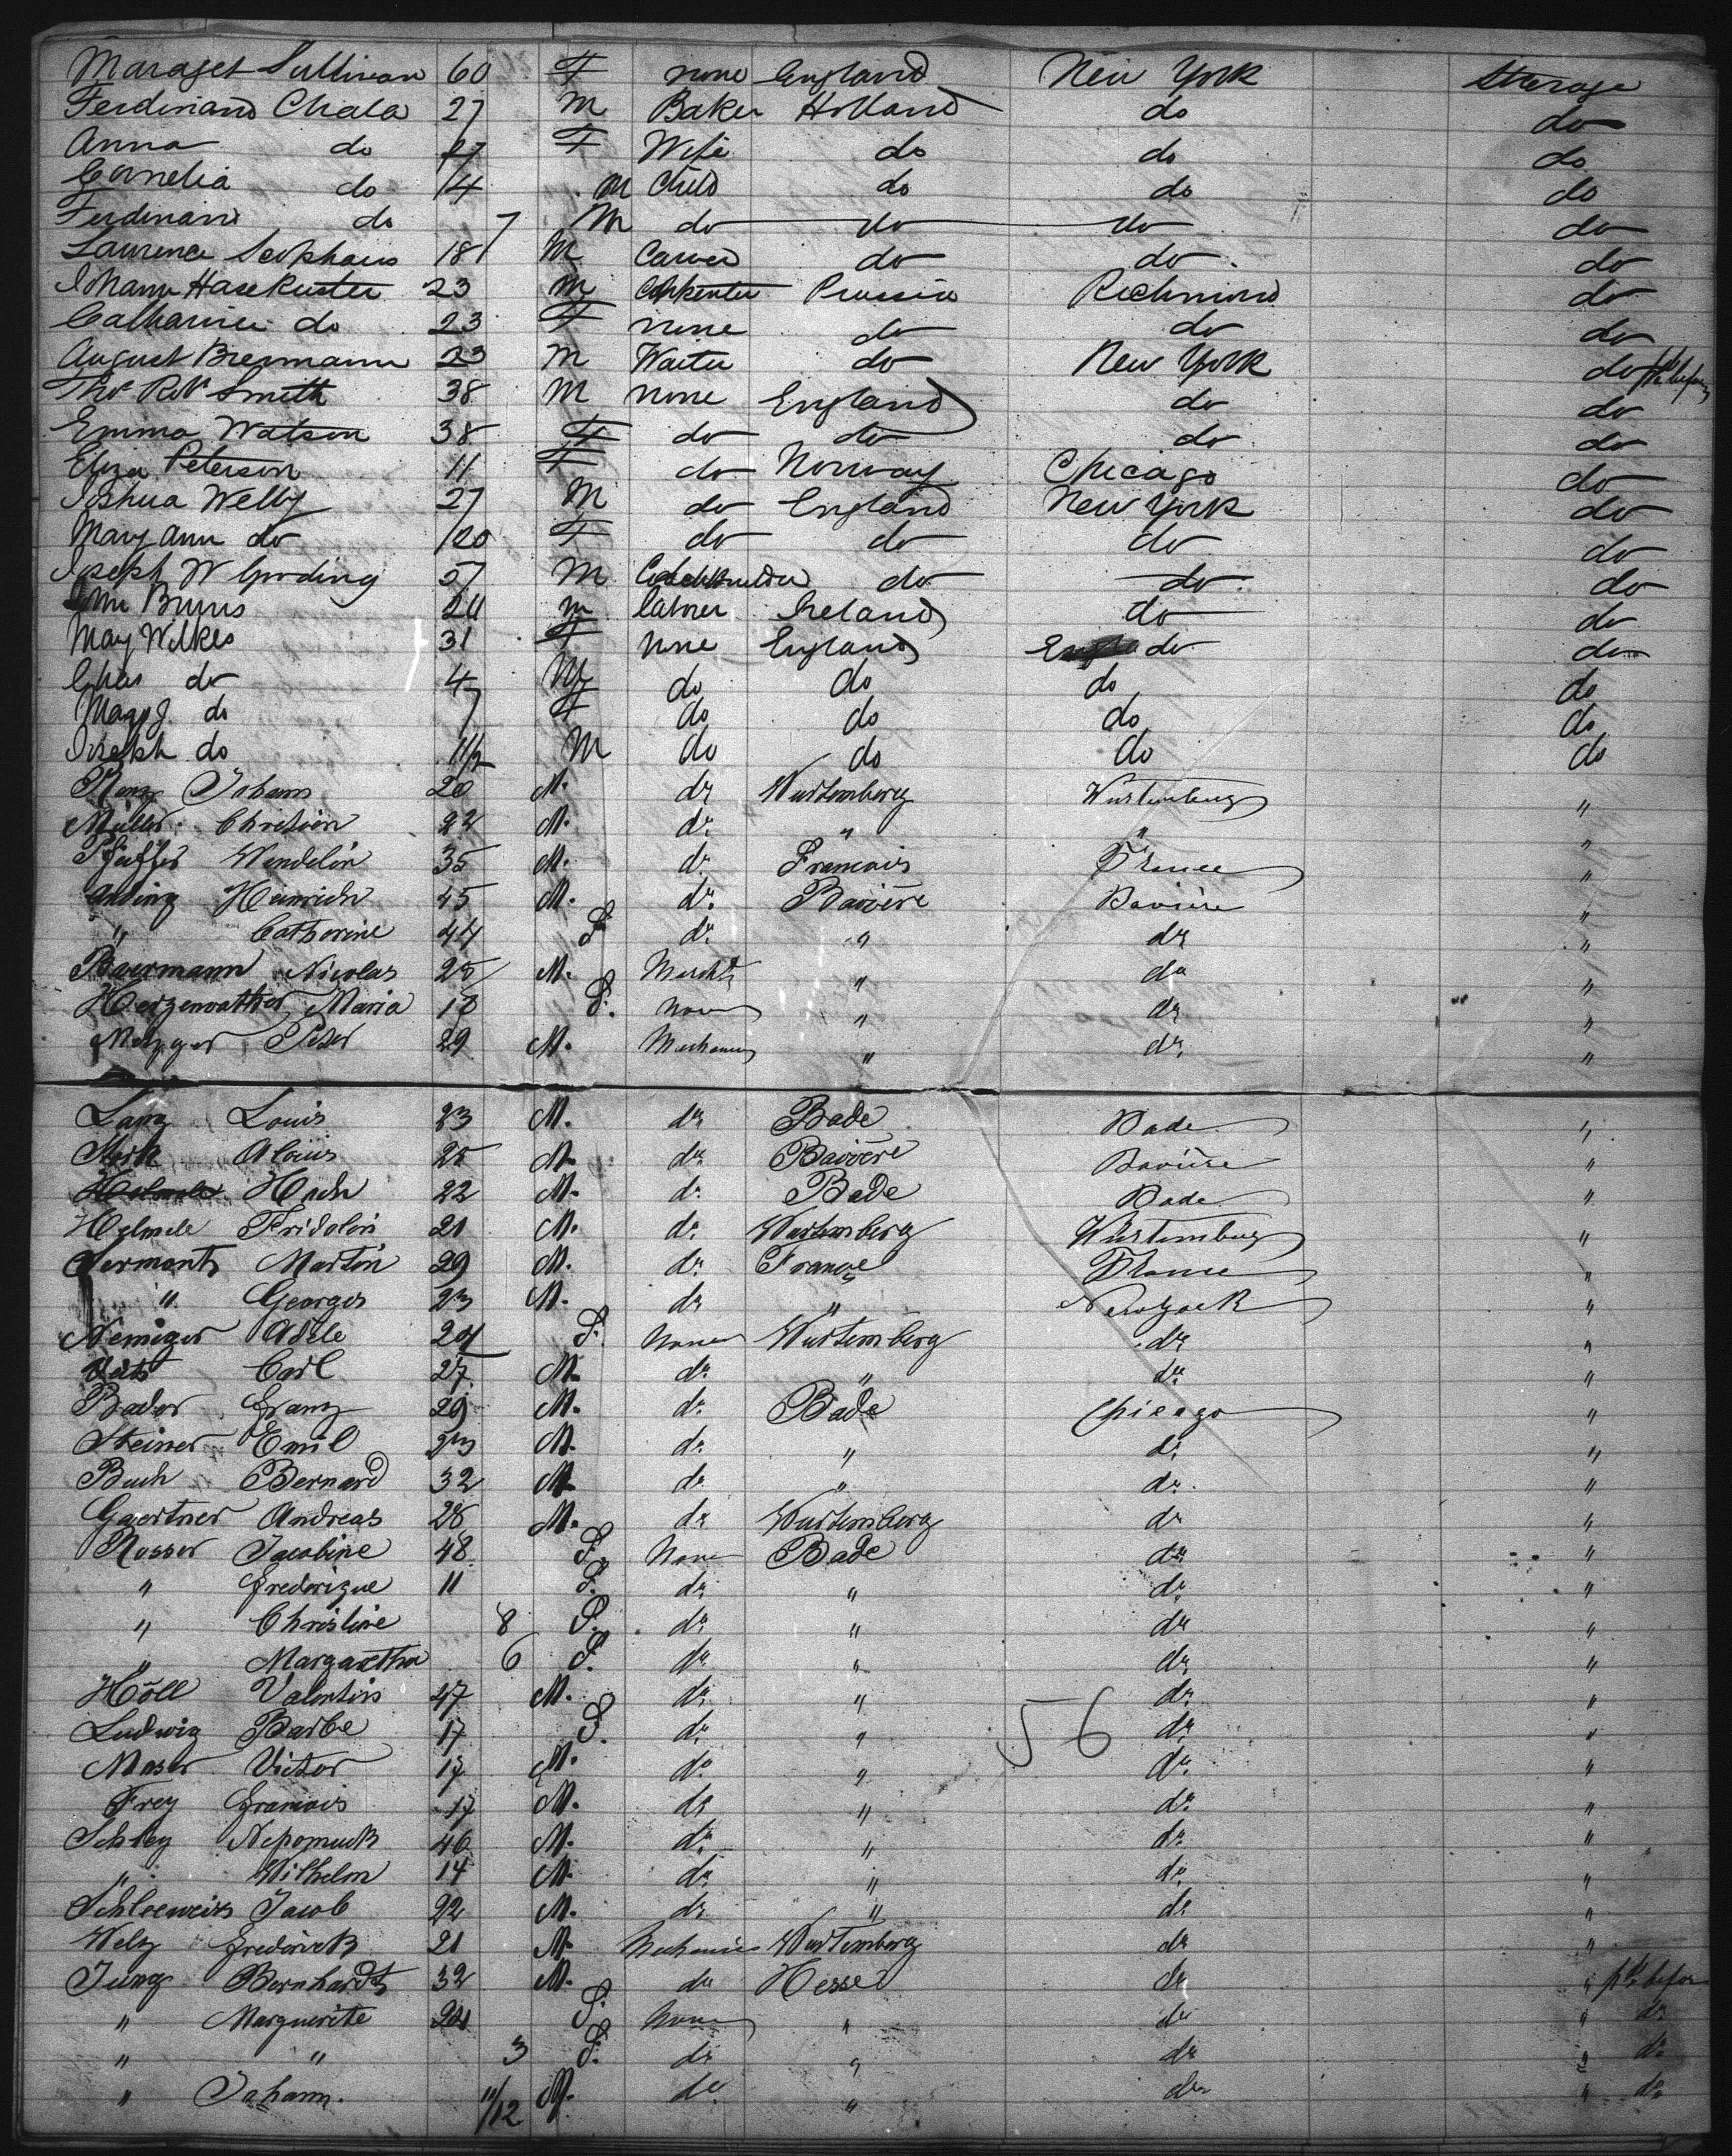 Maraget Sullivan 60 F none England New York Sterage
Ferdinand Chala 27 M Baker Holland do do
Anna do 27 F Wife do do do
Cornelia do 14 M Child do do do
Ferdinand do 7 M do do do do
Laurence 18 M Carver do do do
Hasekuster 23 M Carpenter Prussia Richmond do
Catharine do 23 F none do do do
August Biermann 23 M Waiter do New York do
Thos Robt Smith 38 M none England do do
Emma Watson 38 F do do do do
Eliza Peterson 11 F do Norway Chicago do
Joshua Welby 27 M do England New York do
Mary Ann do 20 F do do do do
Joseph W Gooding 57 M Coachbuilder do do do
John Burns 24 M Labner Ireland do do
May Wilkes 31 F none England do do
Chas do 4 M do do do do
Magg J. do 7 F do do do do
Joseph do 11/12 M do do do do
Renz Johann 20 M. do Wurtemberg Wurtemburg "
Müller Christian 22 M. do " " "
Pfeiffer Wendelin 35 M. do Francais France "
Heinrich 45 M. do Bavière Bavière "
" Catherine 44 F do " do "
Baermann Nicolas 25 M. Mercht " do "
Maria 18 F. None " do "
Metzger Peter 29 M. Mechanic " do "
Lang Louis 23 M. do Bade Bade "
Merk Alouis 25 M. do Bavière Bavière "
Hach 22 M. do Bade Bade "
Helmele Fridolin 21 M. do Wurtemberg Wurtemburg "
Sermonts Martin 29 M. do France France "
" Georges 23 M. do " New York "
Nemiger Adele 24 F. None Wurtemberg do "
Veit Carl 27 M. do " do "
Bader Franz 29 M. do Bade Chicago "
Steiner Emil 23 M. do " do "
Buch Bernard 32 M. do " do "
Gaertner Andreas 28 M. do Wurtemberg do "
Rosser Jacobine 48 F. None Bade do "
" Frederique 11 F. do " do "
" Christine 8 F. do " do "
" Margaretha 6 F. do " do "
Höll Valentin 47 M. do " do "
Ludwig Barbe 17 F. do " do "
56
Maser Victor 17 M. do " do "
Frey Francois 17 M. do " do "
Schley Nepomuck 46 M. do " do "
" Wilhelm 14 M. do " do "
Schleeweiss Jacob 22 M. do " do "
Welz Frederick 21 M. Mechanic Wurtemberg do "
Jung Bernhardt 32 M. do Hesse do "
" Marguerite 24 F. None " do " do
" " 3 F. do " do " do
" Johann. 11/12 M. do " do " do